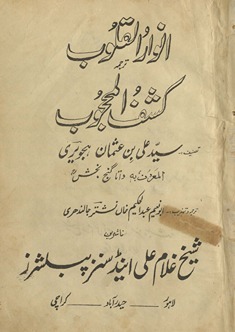 انوار القلوب
ترجمہ
کشف المحجوب
تصنیف:۔ سید علی بن عثمان ہجویری
المعروف بہ داتا گنج بخشؒ
ترجمہ و تہذیب:۔ ابو نعیم عبدالحکیم خاں نشتر جالندھری
ناشرین
شیخ غلام علی اینڈ سنز پبلشرز
لاہور حیدرآباد کراچی